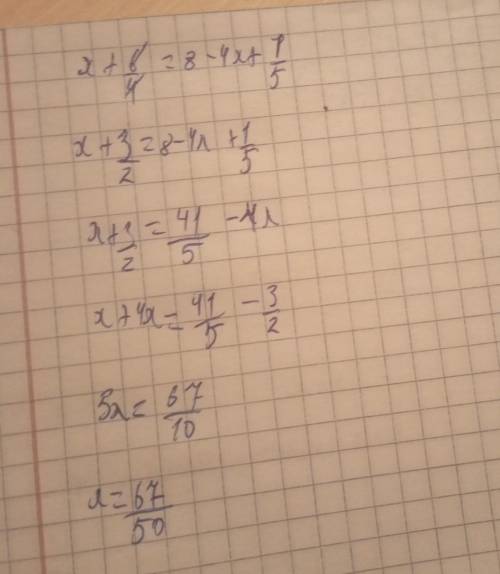 x + 6/4 = 8 - 4x + 1/5
x + 3/2 = 8 - 4x + 1/5
x + 3/2 = 41/5 - 4x
x + 4x = 41/5 - 3/2
5x = 67/10
x = 67/50